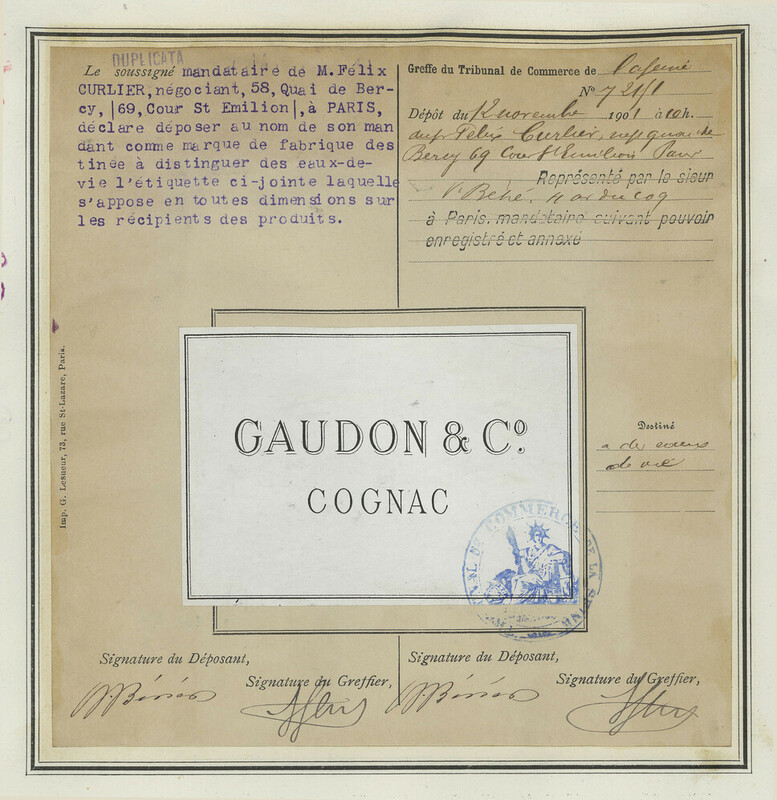 DUPLICATA
Le soussigné mandataire de M. Félix
CURLIER, négociant, 58, Quai de Ber-
cy, |69, Cour St Emilion|, à PARIS,
déclare déposer au nom de son man
dant comme marque de fabrique des
tinée à distinguer des eaux-de-
vie l'étiquette ci-jointe laquelle
s'appose en toutes dimensions sur
les récipients des produits.
Greffe du Tribunal de Commerce de la Seine
No 721/1
Dépôt du 12 novembre 1901 à 10h.
Felix Curlier, quai de
Bercy 69 Cour St Emilion Paris
Représenté par le sieur
à Paris. mandataire suivant pouvoir
enregistré et annexé
Imp. G. Lesueur, 73, rue St-Lazare, Paris.
GAUDON & Co.
COGNAC
Destiné
à des eaux
de vie
TRIBUNAL DE COMMERCE DE LA SEINE
Signature du Déposant,
Signature du Greffier,
Signature du Déposant,
Signature du Greffier,